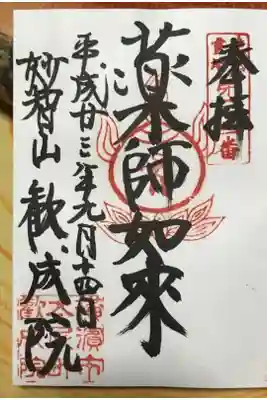 奉拝
薬師如來
平成廿年九月十四日
妙智山 歓成院
横濱市